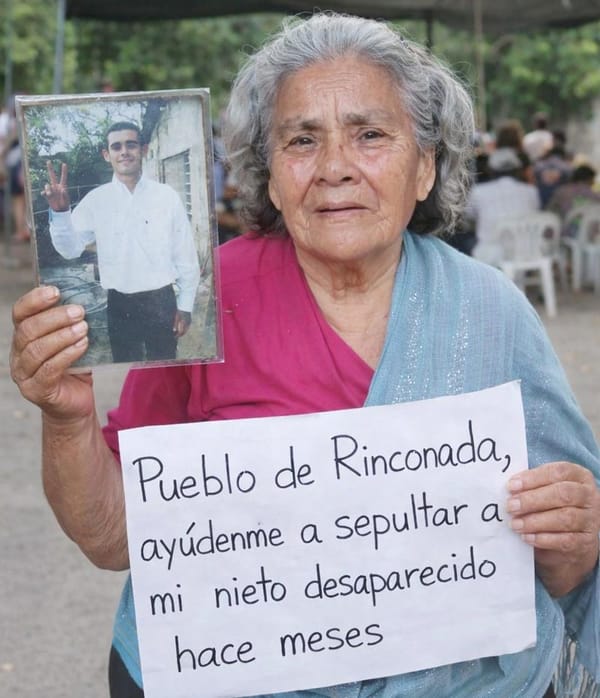 Pueblo de Rinconada,
ayúdenme a sepultar a
mi nieto desaparecido
hace meses